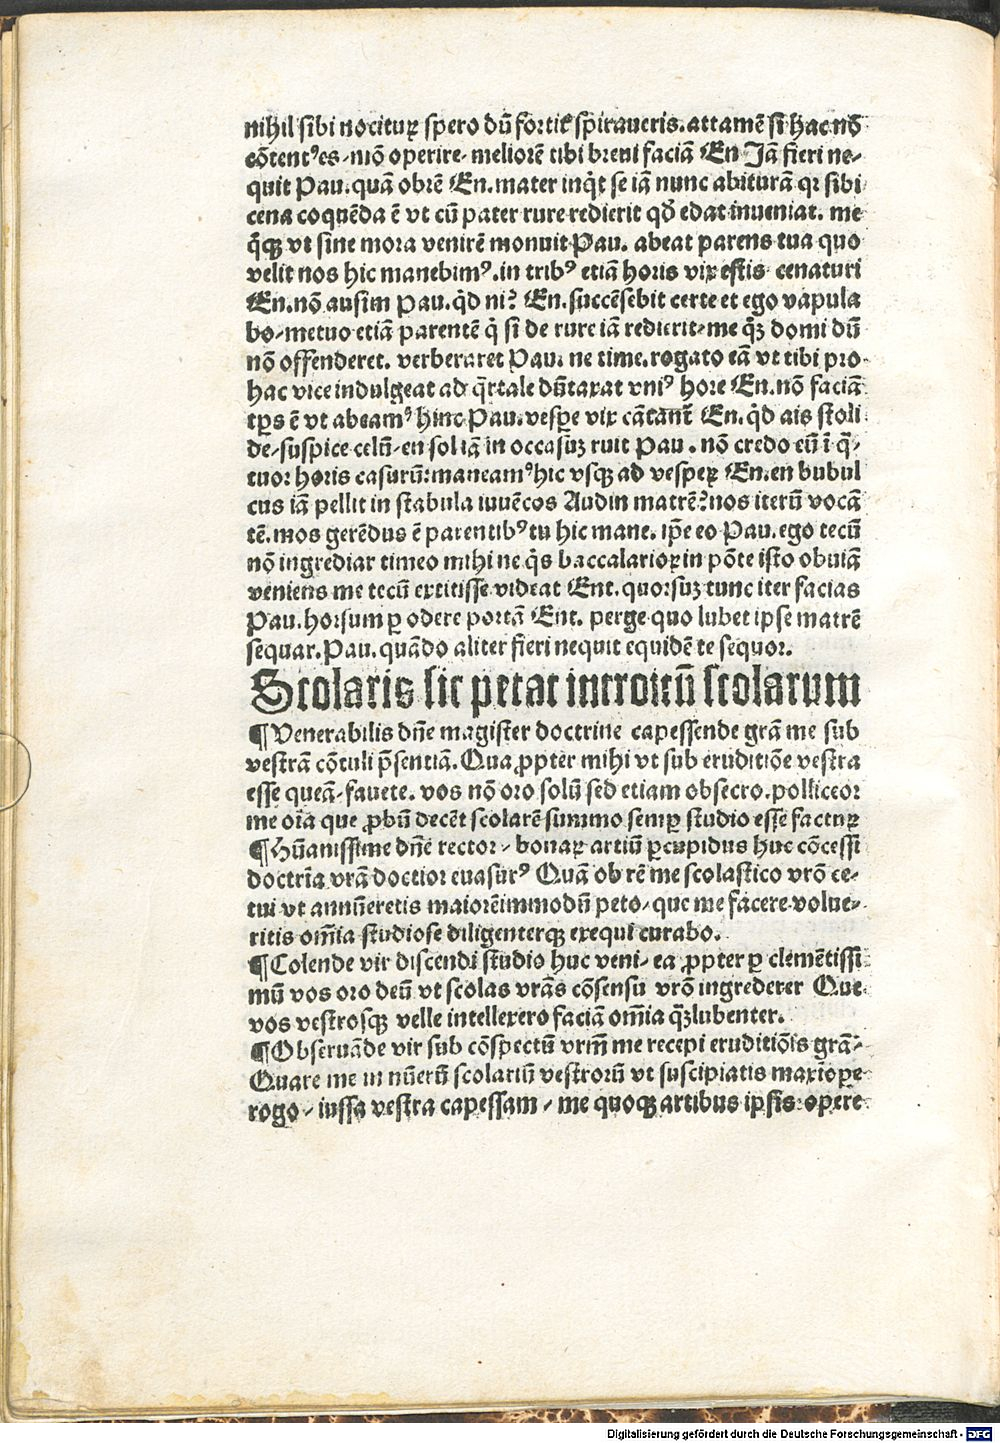 nihil sibi nocituꝝ spero dū fortiꝰ spiraueris. attamē si hac nō
cōtentꝰes. mō operire. meliorē tibi breui faciā En Jā fieri ne-
quit Pau. quā obrē En. mater inq̇t se iā nunc abiturā qꝛ sibi
cena coquēda ē vt cū pater rure redierit qđ edat inueniat. me
q̄ꝫ vt sine mora venirē monuit Pau. abeat parens tua quo
velit nos hic manebimꝰ. in tribꝰ etiā horis vix estis cenaturi
En. nō ausim Pau. q̇d ni? En. succēsebit certe et ego vapula
bo. metuo etiā parentē q̇ si de rure iā redierit. me qꝫ domi dū
nō offenderet. verberaret Pau. ne time. rogato eā vt tibi pro
hac vice indulgeat ad q̄rtale dūtaxat vniꝰ hore En. nō faciā
tp̄s ē vt abeamꝰ hinc Pau. vesꝑe vix cātant̄ En. q̇d ais stoli
de. suspice celū. en sol iā in occasuꝫ ruit Pau. nō credo eū ī q̄-
tuor horis casurū: maneamꝰ hic vsqꝫ ad vesꝑeꝝ En. en bubul
cus iā pellit in stabula iuuēcos Audin matrē? nos iterū vocā
tē. mos gerēdus ē parentibꝰ tu hic mane. ip̄e eo Pau. ego tecū
nō ingrediar timeo mihi ne q̇s baccalarioꝝ in pōte isto obuiā
veniens me tecū extitisse videat Ent. quorsuꝫ tunc iter facias
Pau. horsum ꝑ odere portā Ent. perge quo lubet ipse matrē
sequar. Pau. quādo aliter fieri nequit equidē te sequor.
Scolaris sic petat introitū scolarum
¶ Venerabilis dn̄e magister doctrine capessende grā me sub
vestrā cōtuli p̄sentiā. Qua ꝓpter mihi vt sub eruditiōe vestra
esse queā. fauete. vos nō oro solū sed etiam obsecro. polliceor
me oīa que ꝓbū decēt scolarē summo semꝑ studio esse factuꝝ
¶ Hūanissime dn̄e rector. bonaꝝ artiū ꝑcupidus huc cōcessi
doctrīa vrā doctior euasurꝰ Quā ob rē me scolastico vrō ce-
tui vt annūeretis maiorēimmodū peto. que me facere volue-
ritis om̄ia studiose diligenterqꝫ exequi curabo.
¶ Colende vir discendi studio huc veni. ea ꝓpter ꝑ clemētissi
mū vos oro deū vt scolas vrās cōsensu vrō ingrederer Que
vos vestrosqꝫ velle intellexero faciā om̄ia qꝫlubenter.
¶ Obseruāde vir sub cōspectū vrm̄ me recepi eruditiōis grā.
Quare me in nūerū scolariū vestrorū vt suscipiatis maxīoꝑe
rogo. iussa vestra capessam. me quoqꝫ artibus ipsis opere
Digitalisierung gefördert durch die Deutsche Forschungsgemeinschaft - DFG